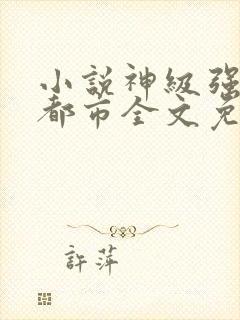 小說神級强
都市全文免
許萍